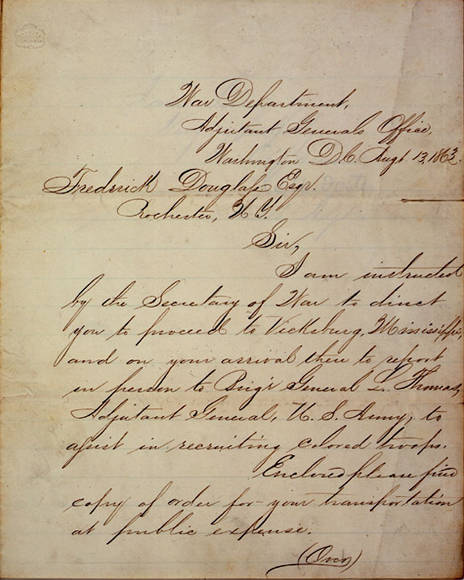 War Department,
Adjutant Generals Office,
Washington D.C. Augt 13, 1863.
Frederick Douglass Esqr.
Rochester, N.Y.
Sir,
I am instructed
by the Secretary of War to direct
you to proceed to Vicksburg, Mississippi,
and on your arrival there to report
in person to Brig'r General L. Thomas,
Adjutant General, U.S. Army, to
assist in recruiting colored troops.
Enclosed please find
copy of order for your transportation
at public expense.
(Over)